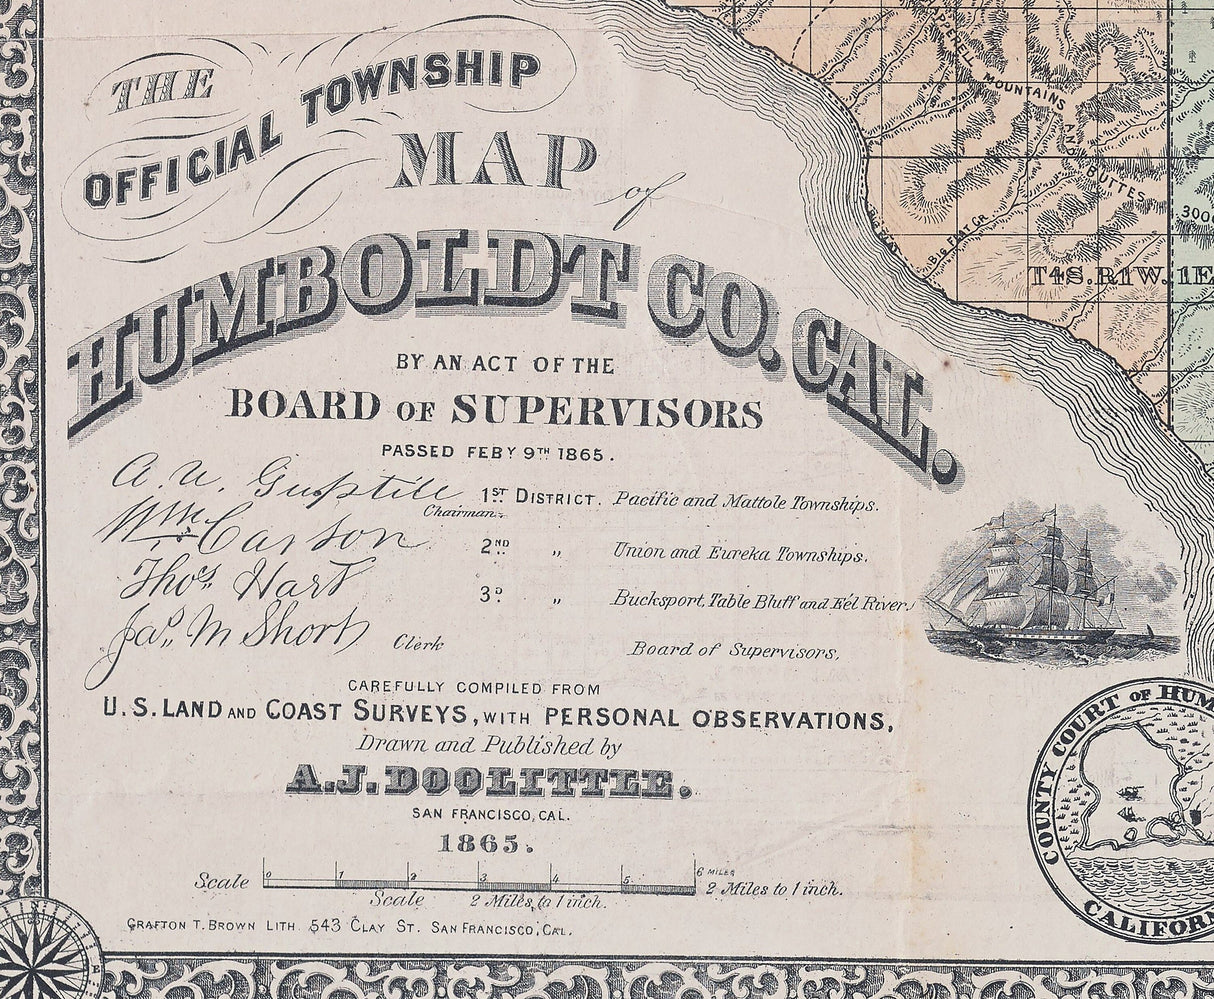 THE
OFFICIAL TOWNSHIP
MAP of
HUMBOLDT CO. CAL.
BY AN ACT OF THE
BOARD OF SUPERVISORS
PASSED FEBY 9TH 1865.
A. W. Guptill Chairman. 1ST DISTRICT. Pacific and Mattole Townships.
Wm Carson 2ND „ Union and Eureka Townships.
Thos. Hart 3D „ Bucksport, Table Bluff and Eel River.
Jas. M Short Clerk Board of Supervisors.
CAREFULLY COMPILED FROM
U.S. LAND AND COAST SURVEYS, WITH PERSONAL OBSERVATIONS,
Drawn and Published by
A.J. DOOLITTLE.
SAN FRANCISCO, CAL.
1865.
Scale 0 1 2 3 4 5 6 MILES 2 Miles to 1 inch.
Scale 2 Miles to 1 inch.
GRAFTON T. BROWN LITH. 543 CLAY ST. SAN FRANCISCO, CAL.
E
MOUNTAINS AND BUTTES
3000
BIG FLAT CR.
T4S. R1W. 1E
COUNTY COURT OF HUM
CALIFOR